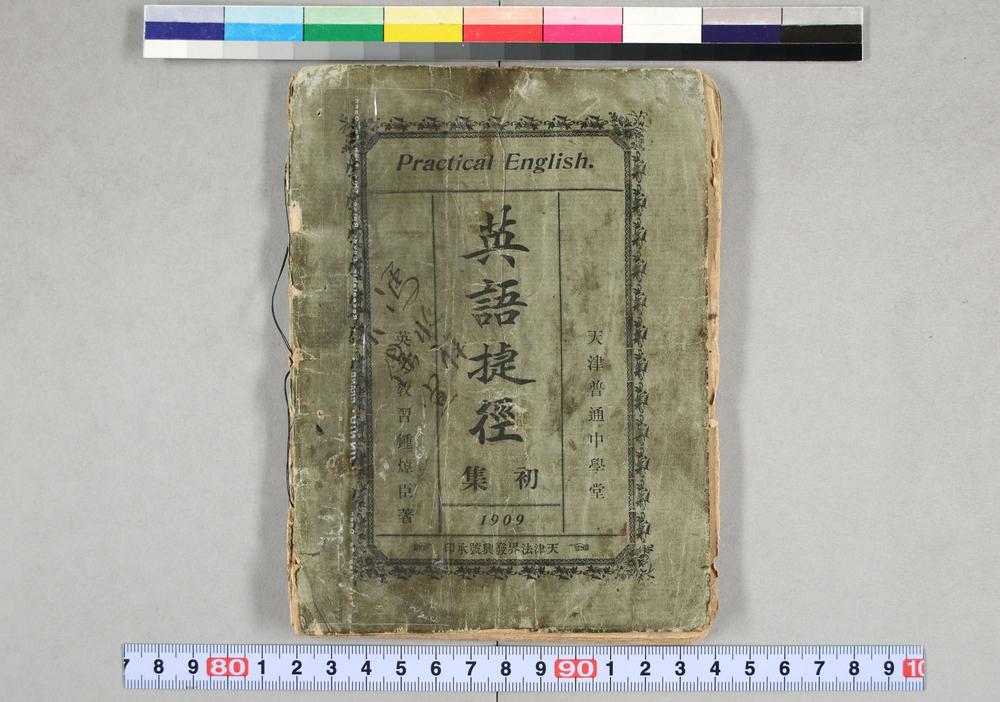 Practical English.
天津普通中學堂
英語捷徑
初集
英文教習鍾焯臣著
1909
天津法界發興號承印
7 8 9 80 1 2 3 4 5 6 7 8 9 90 1 2 3 4 5 6 7 8 9 10